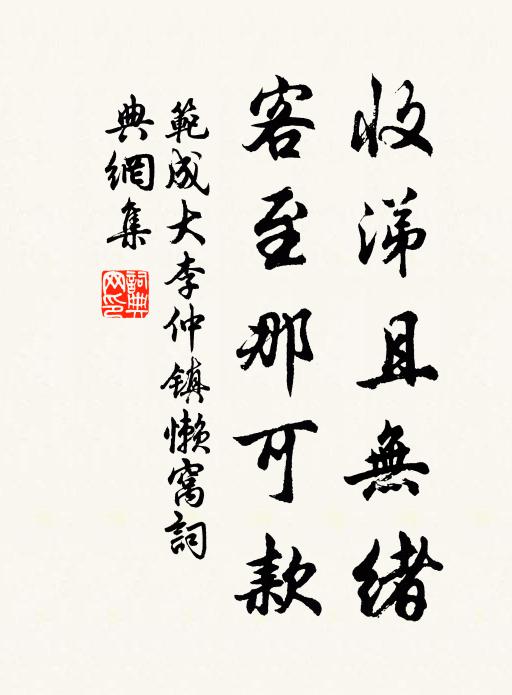 收涕且無緒
客至那可款
範成大李仲鎮懶窩詞
典網集
詞典網印